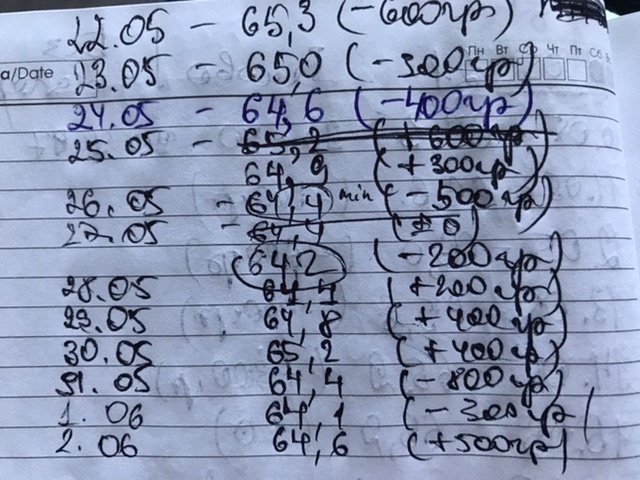 22.05 - 65,3 (-600гр)
Пн Вт Ср Чт Пт Сб
a/Date
23.05 - 65,0 (-300гр)
24.05 - 64,6 (-400гр)
25.05 - 65,2 (+600гр)
64,9 (+300гр)
26.05 - 64,4 min (-500гр)
27.05 - 64,4 (±0)
64,2 (-200гр)
28.05 64,4 (+200гр)
29.05 64,8 (+400гр)
30.05 65,2 (+400гр)
31.05 64,4 (-800гр)
1.06 64,1 (-300гр)
2.06 64,6 (+500гр)